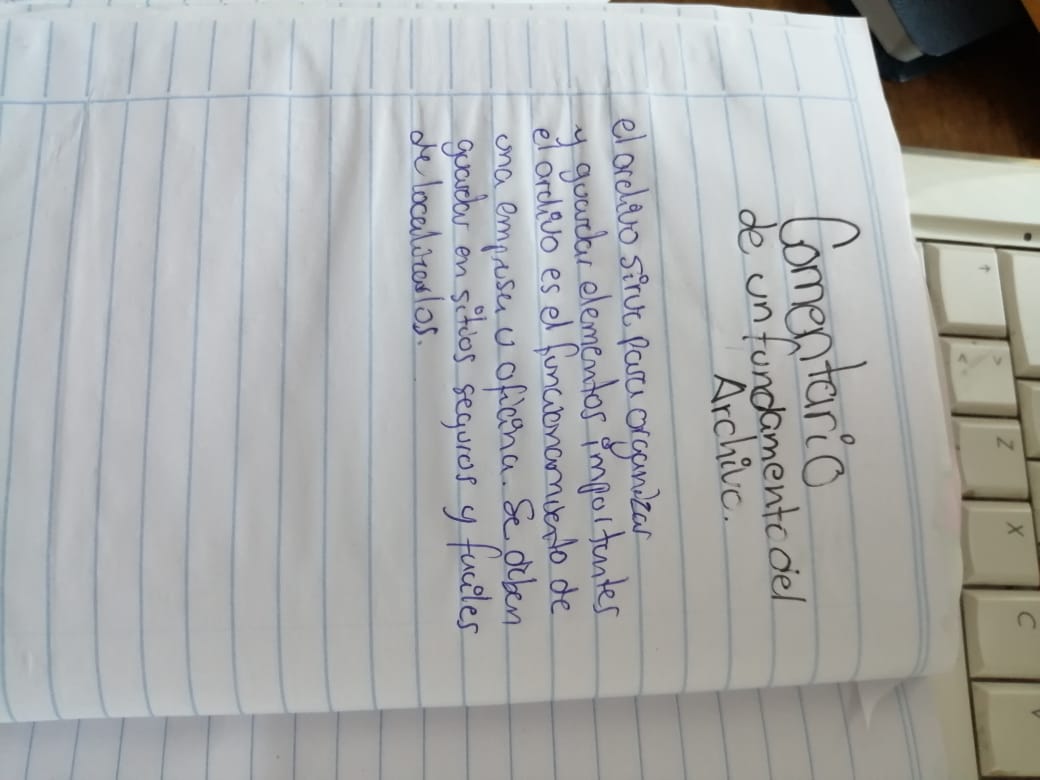 Comentario
de un fundamento del
Archivo.
el archivo sirve para organizar
y guardar elementos importantes
el archivo es el funcionamiento de
una empresa u oficina. Se deben
guardar en sitios seguros y faciles
de localizarlos.
Z
X
C